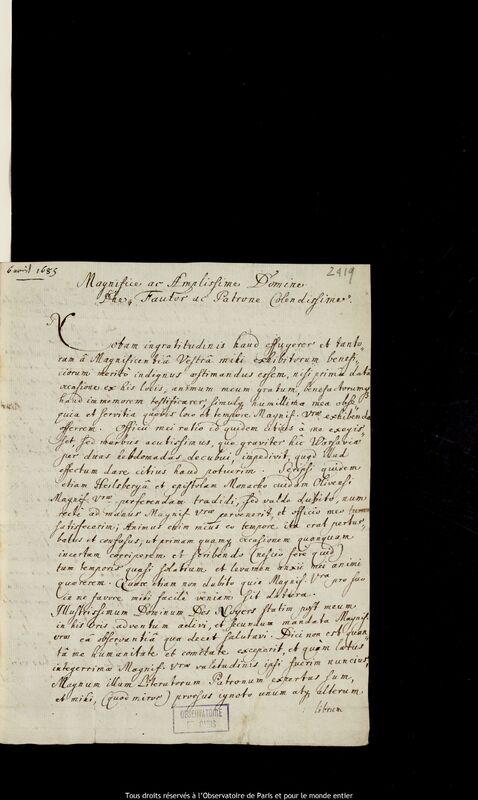 6 avril 1685
2419
Magnifice ac Amplissime Domine
Fautor ac Patrone Colendissime.
Notam ingratitudinis haud effugerer et tanto,
rum à Magnificentiâ Vestrâ mihi exhibitorum benefi,
ciorum merito indignus æstimandus essem, nisi primâ datâ
occasione ex his locis, animum meum gratum, benefactorumq;
haud immemorem testificarer, simulq; humillima mea obse,
quia et servitia quovis loco et tempore Magnif. Vræ exhibenda
offerem. Officii mei ratio id quidem citius à me exegis,
set, sed morbus acutissimus, quo graviter hic Warsaviæ
per duas hebdomadas decubui, impedivit, quod illud
effectum dare citius haud potuerim. Scripsi quidem
etiam Heilsbergâ et epistolam Monacho cuidam Olivensi
Magnif. Vræ perferendam tradidi, sed valdo dubito, num
recte ad manus Magnif. Vræ pervenerit, et officio meo
satisfecerim; Animus enim meus eo tempore ita erat pertur,
batus et confusus, ut primam quamq; occasionem quanquam
incertam corriperem et scribendo (nescio fere quid)
tam temporis quasi solatium et levamen anxii mei animi
quærerem. Quare etiam non dubito quin Magnif. Vra pro suo
in me favore mihi facilè veniam sit datura.
Illustrissimum Dominum Des Noyers statim post meum
in his oris adventum adivi, et secundum mandata Magnif.
Vræ eâ observantiâ qua decet salutavi. Dici non est quan
tâ me humanitate et comitate exceperit, et quàm lætus
integerrimæ Magnif. Vræ valetudinis ipsi fuerim nuncius,
Magnum illum Literatorum Patronum expertus sum,
et mihi, (quod miror) prorsus ignoto unum atq; alterum
librum
OBSERVATOIRE
DE PARIS
Tous droits réservés à l'Observatoire de Paris et pour le monde entier